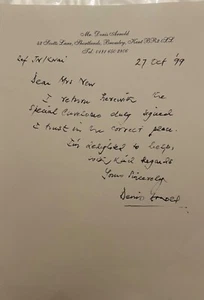 Mr. Denis Arnold
Scotts Lane, Shortlands, Bromley, Kent
27 Oct '99
Dear Mrs New
I return herewith the
Special duly signed
I trust in the correct place.
I'm delighted to help.
with kind regards
Yours Sincerely
Denis Arnold